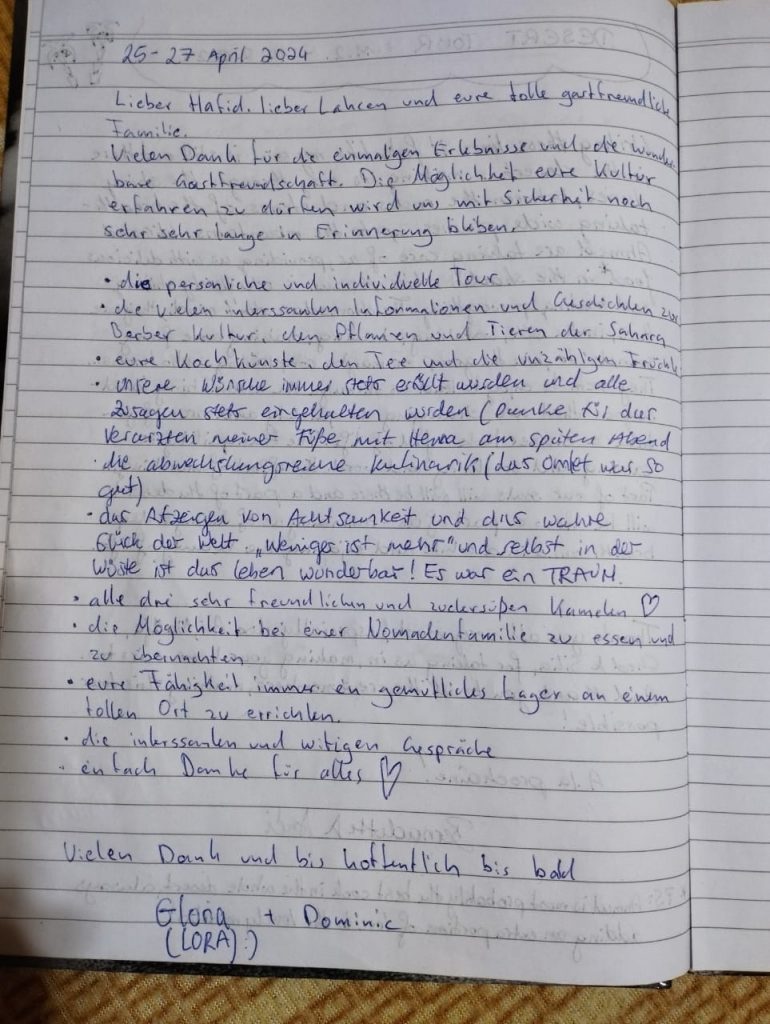 25 - 27 April 2024
Lieber Hafid, lieber Lahcen und eure tolle gastfreundliche
Familie.
Vielen Dank für die einmaligen Erlebnisse und die wunder
bare Gastfreundschaft. Die Möglichkeit eure Kultur
erfahren zu dürfen wird uns mit Sicherheit noch
sehr sehr lange in Erinnerung bliben.
• die persönliche und individuelle Tour
• die vielen interssanten Informationen und Geschichten zur
Berber Kultur, den Pflanzen und Tieren der Sahara
• eure Kochkünste, den Tee und die unzähligen Früchte
• unsere Wünsche immer stets erfüllt wurden und alle
Zusagen stets eingehalten wurden (Danke für das
Verarzten meiner Füße mit Henna am späten Abend
• die abwechslungsreiche Kulinarik (das Omlet war so
gut)
• das Afzeigen von Achtsamkeit und das wahre
Glück der Welt „Weniger ist mehr" und selbst in der
Wüste ist das leben wunderbar! Es war ein TRAUM.
• alle drei sehr freundlichen und zuckersüßen Kamelen ♡
• die Möglichkeit bei einer Nomadenfamilie zu essen und
zu übernachten
• eure Fähigkeit immer ein gemütliches Lager an einem
tollen Ort zu errichten.
• die interssanten und witigen Gespräche
• einfach Danke für alles ♡
Vielen Dank und bis hoffentlich bis bald
Gloria + Dominic
(LORA) :)